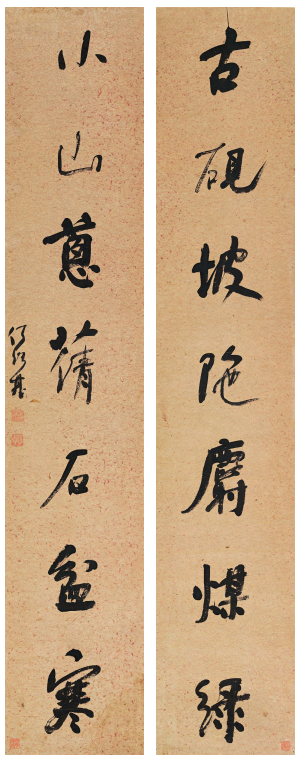 古硯坡陁麝煤綠
小山蔥蒨石盆寒
何紹基